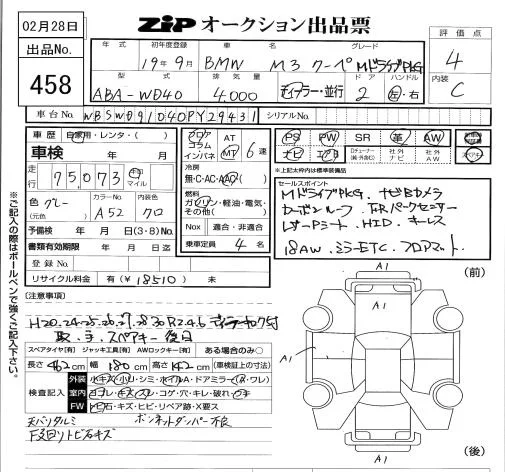 02月28日
ZiP オークション出品票
出品No. 458
評価点 4
内装 C
年式 初年度登録 車名 グレード
19年9月 BMW M3 クーペ Mドライブ PKG
型式 排気量 ドア ハンドル
ABA-WD40 4,000 ディーラー・並行 2 左・右
車台No. WBSWD91040PY29431 シリアルNo.
車歴 自家用・レンタ・( )
車検 年 月
走行 75,073 キロ マイル
色 グレー カラーNo. A52 内装色 クロ
(元色)
予備検 年 月 日 (3・8)No.
書類有効期限 年 月 日迄
登録No.
リサイクル料金 有(¥18510) 未
フロア コラム インパネ AT MT 6速
冷房 無・C・AC・AAC
燃料 ガソリン・軽油・電気・その他( )
Nox 適合・非適合
乗車定員 4名
PS PW SR 革 AW
ナビ エアB 社外ナビ 社外AW スペアキー
※上記太枠内は標準装備品
セールスポイント
MドライブPKG. ナビBカメラ
カーボンルーフ. FRパークセンサー
レザーPシート. HID. キーレス
18AW. ミラーETC. フロアマット.
※ご記入の際はボールペンで強くご記入下さい。
(注意事項)
取.手.スペアキー後日
スペアタイヤ[有] ジャッキ工具[有] AWロックキー[有] ある場合のみ○
長さ 462cm 幅 180cm 高さ 142cm (車検証上の寸法)
検査記入
外装 小キズ・小凹・シミ・ホイルA・ドアミラー(A・ワレ)
室内 ヨゴレ・キズ・スレ・コゲ・穴・キレ・破れ・ウキ
FW トビ石・キズ・ヒビ・リペア跡・X要ス
天バリタルミ ボンネットダンパー不良
(前)
A1
A1
A1
A1
(後)